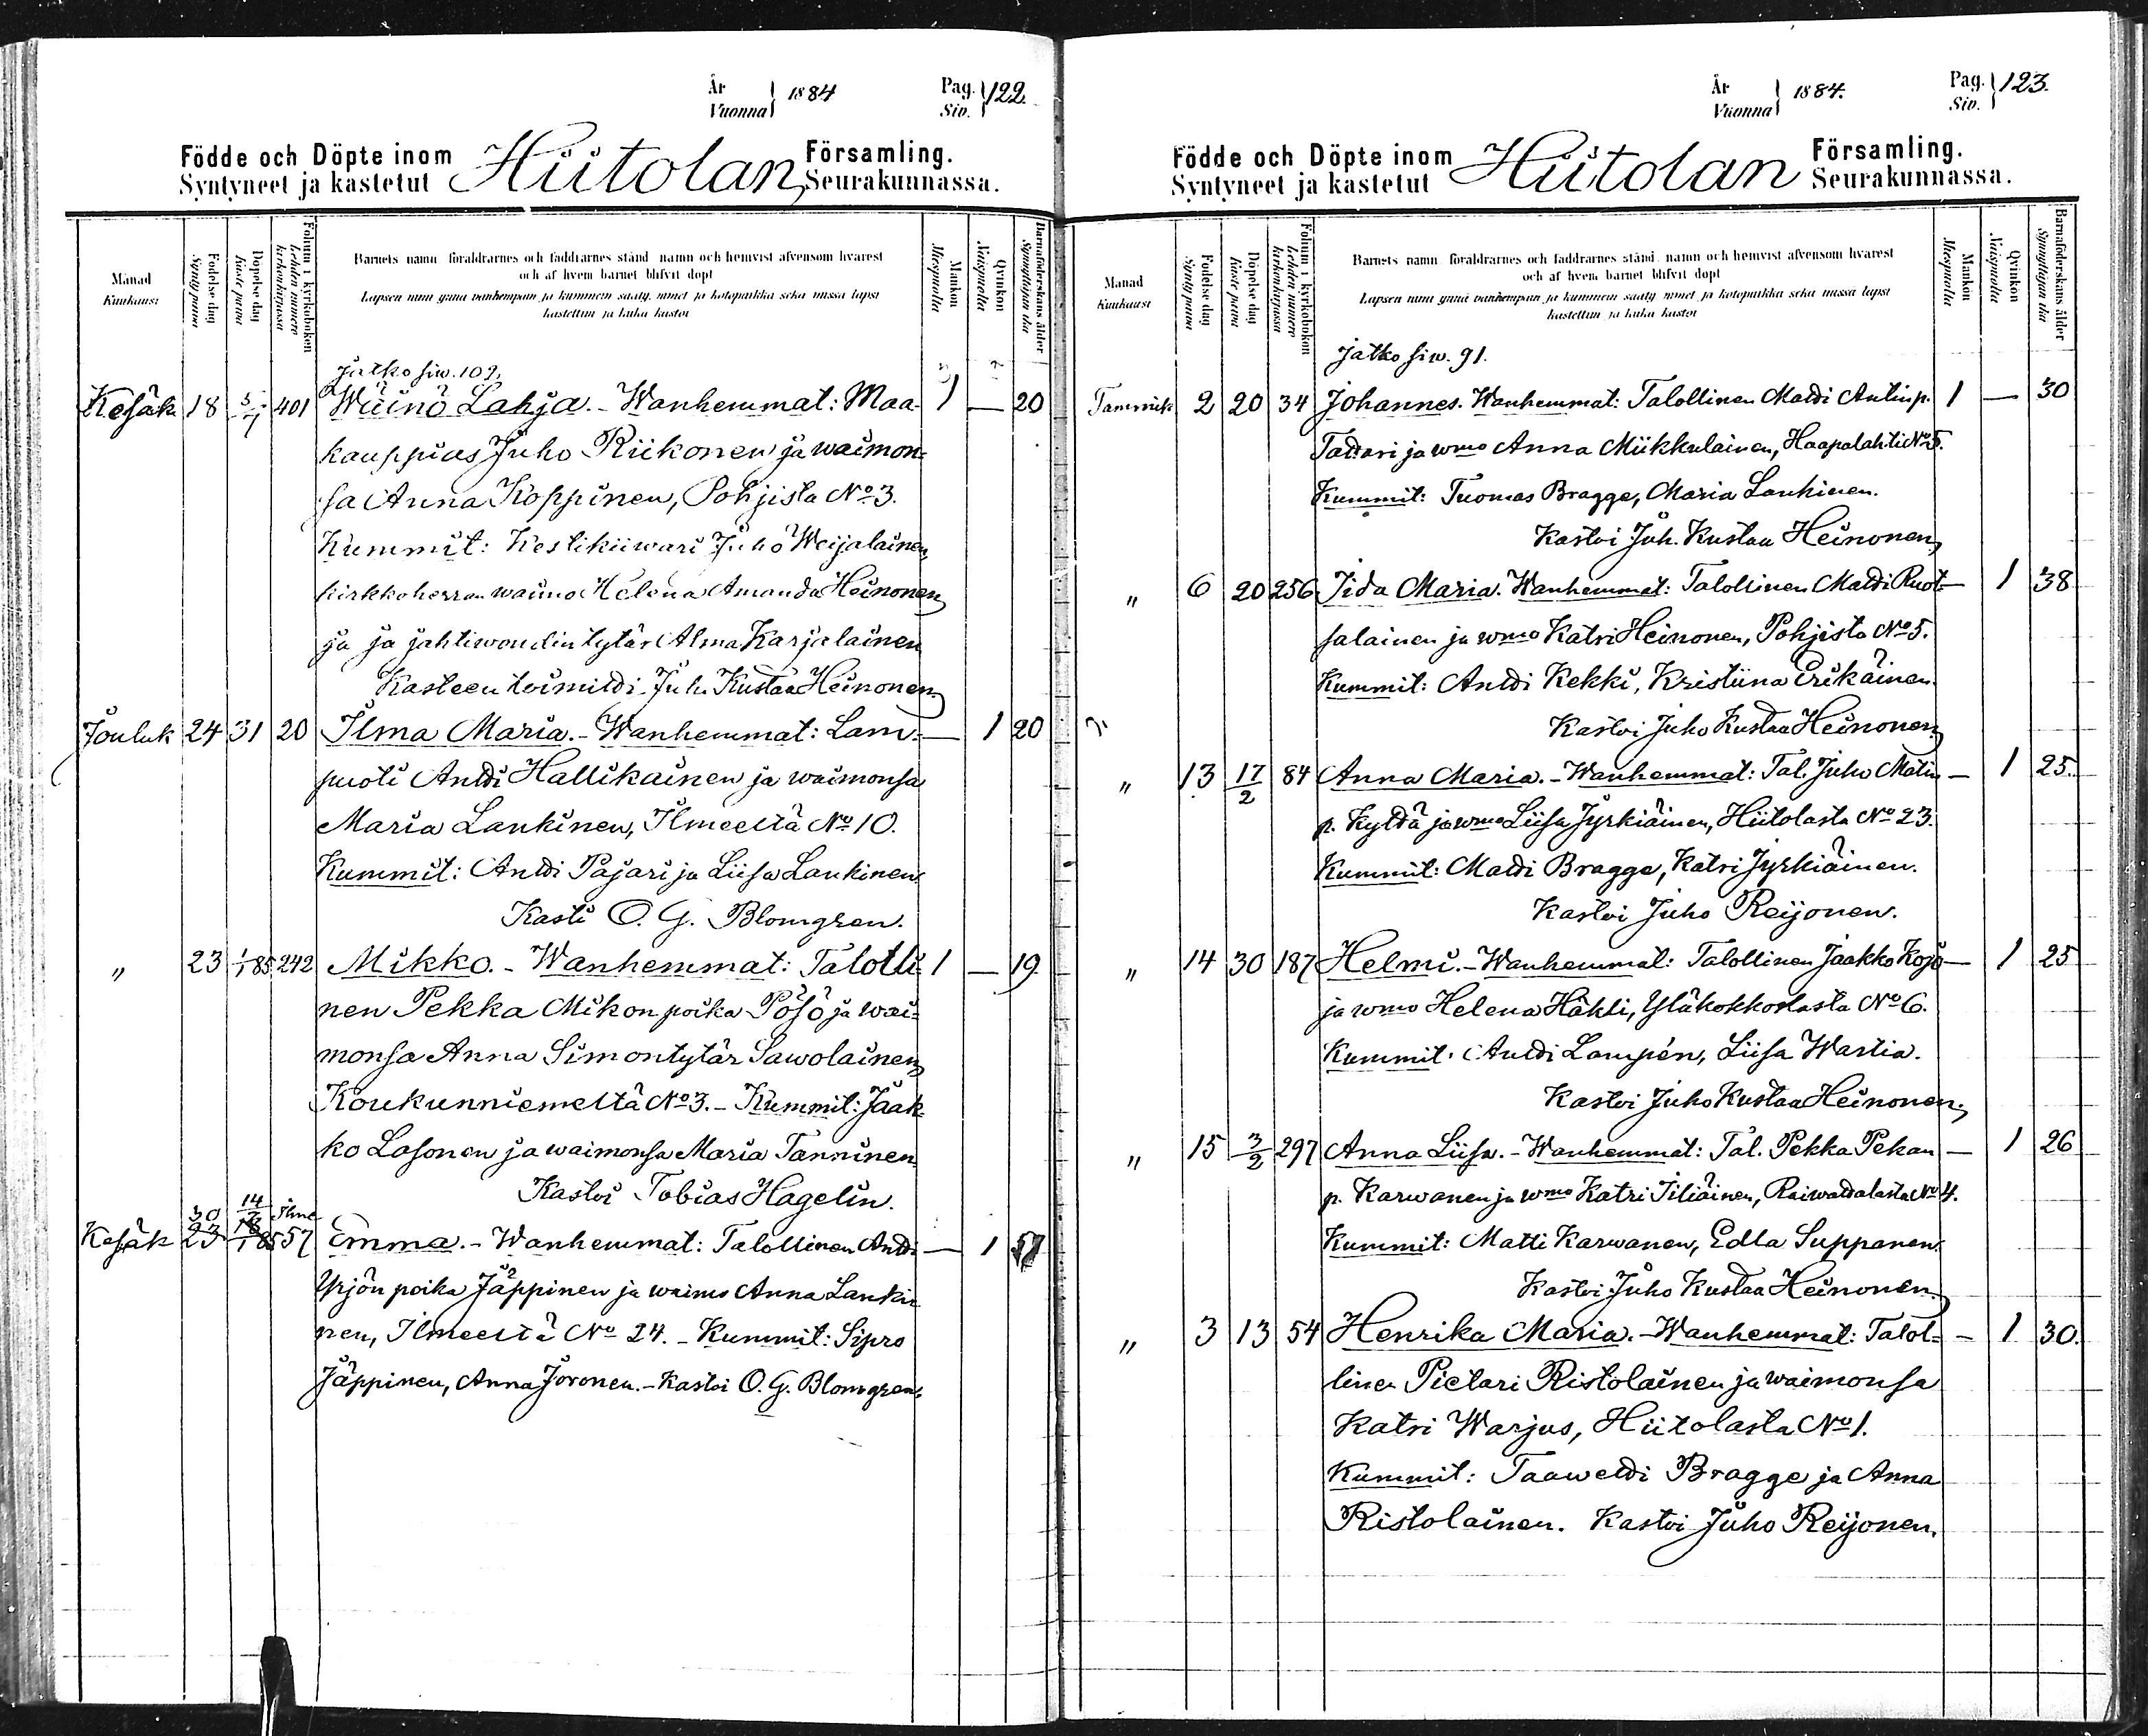 År
Vuonna } 1884
Pag.
Siv. } 122.
Födde och Döpte inom Hiitolan, Församling.
Syntyneet ja kastetut Seurakunnassa.
Månad
Kuukausi
Födelse dag
Synty päivä
Döpelse dag
Kaste päivä
Folium i kyrkoboken
Lehden numero kirkonkirjassa
Barnets namn föräldrarnes och faddrarnes stånd namn och hemvist äfvensom hvarest
och af hvem barnet blifvit döpt
Lapsen nimi ynnä vanhempain ja kummein sääty, nimet ja kotopaikka sekä missä lapsi
kastettiin ja kuka kastoi
Mankön
Miespuolia
Qvinkön
Naispuolia
Barnaföderskans ålder
Synnyttäjän ikä
Jatko siw. 109.
Kesäk 18 5/7 401 Wäinö Lahja. - Wanhemmat: Maa- 1 — 20
kauppias Juho Riikonen ja waimon-
sa Anna Koppinen, Pohjista No 3.
Kummit: Kestikiiwari Juho Weijalainen,
kirkkoherran waimo Helena Amanda Heinonen
ja ja jahtiwoudin tytär Alma Karjalainen
Kasteen toimitti Juh. Kustaa Heinonen,
Jouluk 24 31 20 Ilma Maria. - Wanhemmat: Lam- — 1 20
puoti Antti Hallikainen ja waimonsa
Maria Lankinen, Ilmeeltä No 10.
Kummit: Antti Pajari ja Liisa Lankinen.
Kasti O. G. Blomgren.
" 23 1/1 85 242 Mikko. - Wanhemmat: Talolli- 1 — 19
nen Pekka Mikonpoika Pösö ja wai-
monsa Anna Simontytär Sawolainen,
Koukunniemeltä No 3. - Kummit: Jaak-
ko Lasonen ja waimonsa Maria Tanninen
Kastoi Tobias Hagelin.
30 14/7 Ilme
Kesäk 23 18/1 85 57 Emma. - Wanhemmat: Talollinen Antti — 1
Yrjön poika Jäppinen ja waimo Anna Lanki-
nen, Ilmeeltä No 24. - Kummit: Sipro
Jäppinen, Anna Joronen. - Kastoi O. G. Blomgren,
År
Vuonna } 1884.
Pag.
Siv. } 123.
Födde och Döpte inom Hiitolan Församling.
Syntyneet ja kastetut Seurakunnassa.
Månad
Kuukausi
Födelse dag
Synty päivä
Döpelse dag
Kaste päivä
Folium i kyrkoboken
Lehden numero kirkonkirjassa
Barnets namn föräldrarnes och faddrarnes stånd namn och hemvist äfvensom hvarest
och af hvem barnet blifvit döpt
Lapsen nimi ynnä vanhempain ja kummein sääty nimet ja kotopaikka sekä missä lapsi
kastettiin ja kuka kastoi
Mankön
Miespuolia
Qvinkön
Naispuolia
Barnaföderskans ålder
Synnyttäjän ikä
Jatko siw. 91.
Tammik 2 20 34 Johannes. Wanhemmat: Talollinen Matti Antinp. 1 — 30
Tattari ja wmo Anna Miikkulainen, Haapalahti No 5.
Kummit: Tuomas Bragge, Maria Lankinen.
Kastoi Juh. Kustaa Heinonen,
" 6 20 256 Iida Maria. Wanhemmat: Talollinen Matti Ruot- 1 38
salainen ja wmo Katri Heinonen, Pohjista No 5.
Kummit: Antti Kekki, Kristiina Erikäinen.
Kastoi Juho Kustaa Heinonen,
" 13 17/2 84 Anna Maria. - Wanhemmat: Tal. Juho Matin — 1 25.
p. Kyttä ja wmo Liisa Jyrkiäinen, Hiitolasta No 23.
Kummit: Matti Bragge, Katri Jyrkiäinen.
Kastoi Juho Reijonen.
" 14 30 187 Helmi. - Wanhemmat: Talollinen Jaakko Kojo — 1 25
ja wmo Helena Häkli, Yläkokkolasta No 6.
Kummit: Antti Lampén, Liisa Wartia.
Kastoi Juho Kustaa Heinonen,
" 15 3/2 297 Anna Liisa. - Wanhemmat: Tal. Pekka Pekan — 1 26
p. Karwanen ja wmo Katri Iiliäinen, Raiwattalasta No 4.
Kummit: Matti Karwanen, Edla Suppanen.
Kastoi Juho Kustaa Heinonen,
" 3 13 54 Henrika Maria. - Wanhemmat: Talol- — 1 30.
linen Pietari Ristolainen ja waimonsa
Katri Warjus, Hiitolasta No 1.
Kummit: Taawetti Bragge ja Anna
Ristolainen. Kastoi Juho Reijonen.